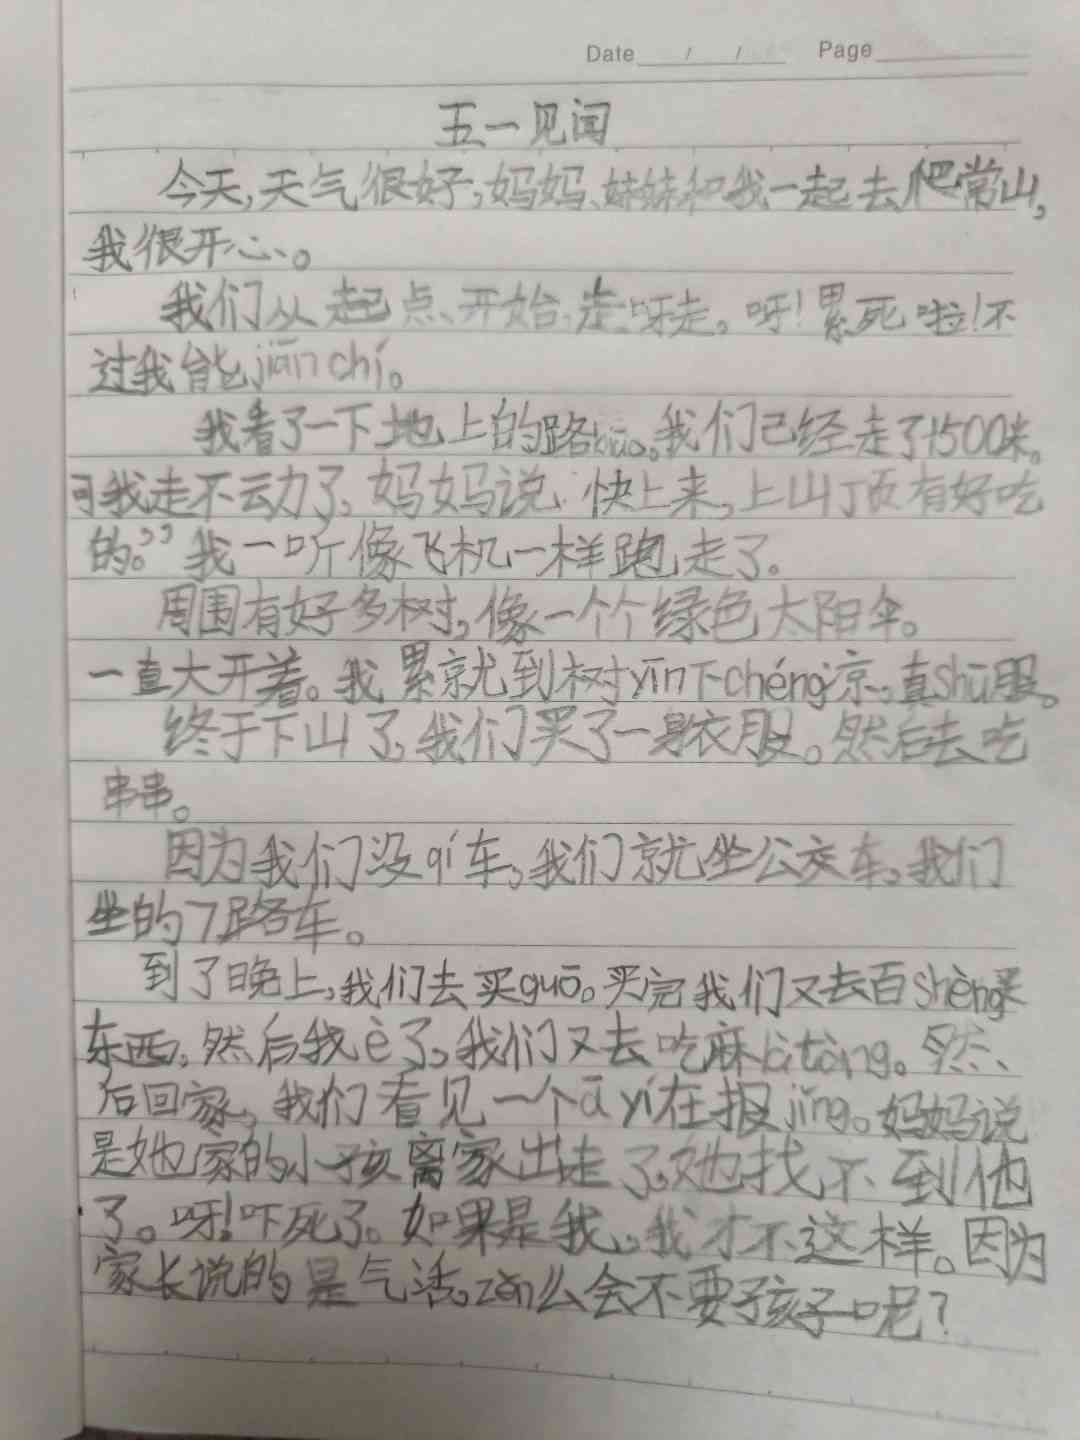 Date / / Page
五一见闻
今天,天气很好,妈妈、妹妹和我一起去爬常山,
我很开心。
我们从起点、开始,走呀走。呀!累死啦!不
过我能jiān chí。
我看了一下地上的路biāo。我们已经走了1500米。
可我走不动了,妈妈说 快上来,上山顶有好吃
的。”我一听像飞机一样跑走了。
周围有好多树,像一个个绿色太阳伞。
一直大开着。我累就到树yīn下chéng凉,真shū服。
终于下山了,我们买了一身衣服。然后去吃
串串。
因为我们没qí车,我们就坐公交车,我们
坐的7路车。
到了晚上,我们去买guō。买完我们又去百shèng买
东西。然后我è了,我们又去吃麻là tàng。然
后回家,我们看见一个ā yí在报jǐng。妈妈说
是她家的小孩离家出走了,她找不到他
了。呀!吓死了。如果是我,我才不这样。因为
家长说的是气话,zěn么会不要孩子呢?